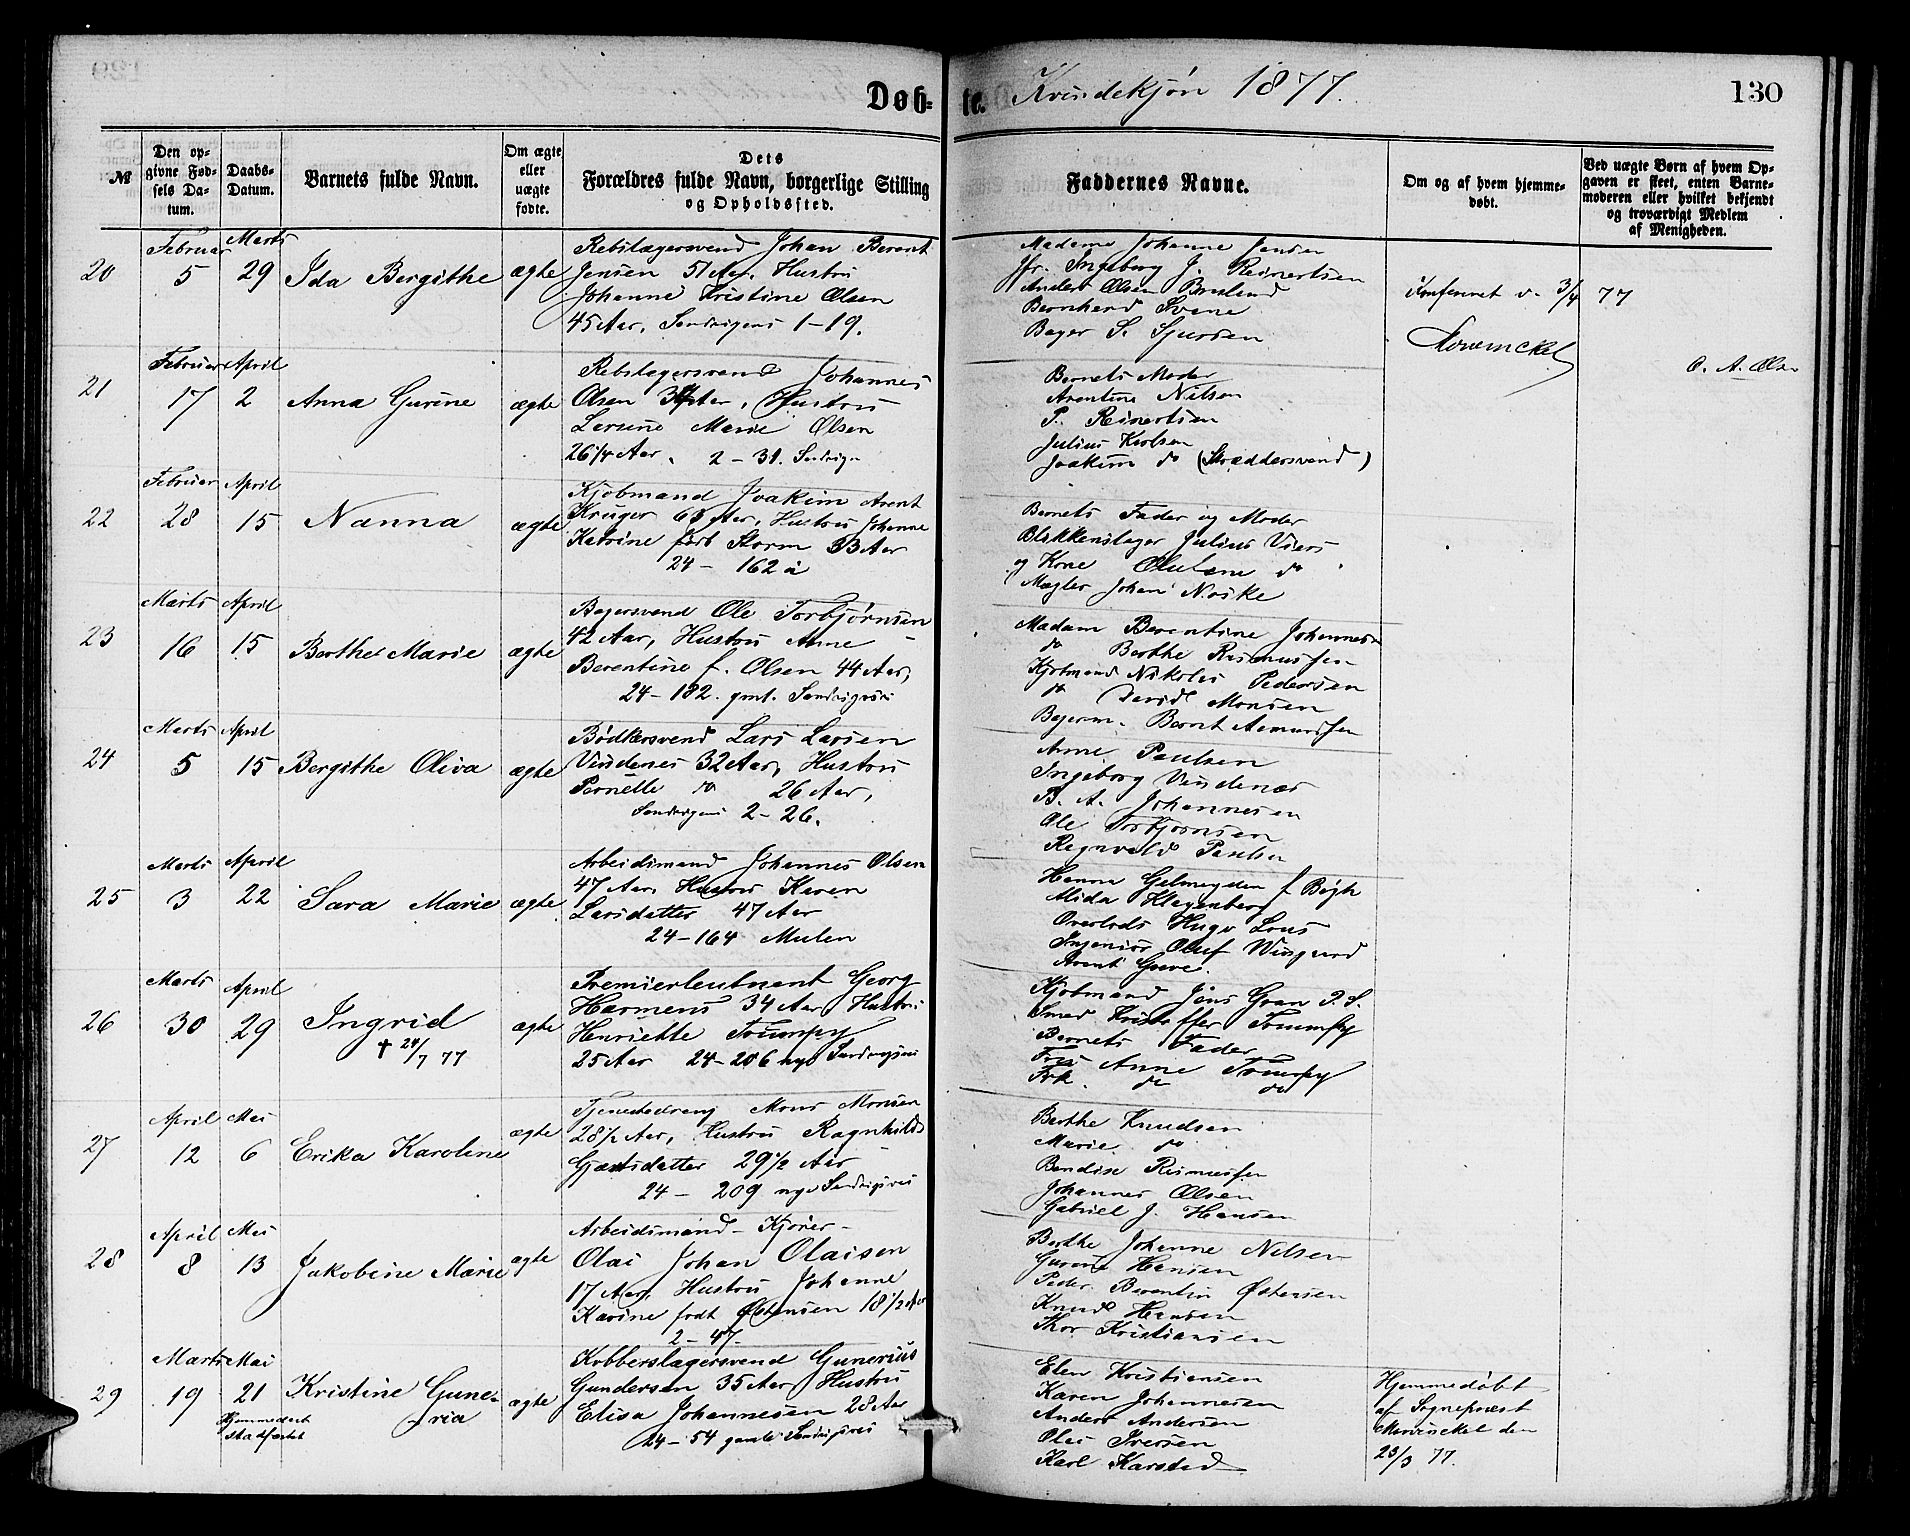 Døb-
te. Kvindekjøn 1877.
130
№
Den op-
givne Fød-
sels Da-
tum.
Daabs-
Datum.
Barnets fulde Navn.
Om ægte
eller
uægte
fødte.
Dets
Forældres fulde Navn, borgerlige Stilling
og Opholdssted.
Faddernes Navne.
Om og af hvem hjemme-
døbt.
Ved uægte Børn af hvem Op-
gaven er skeet, enten Barne-
moderen eller hvilket bekjendt
og troværdigt Medlem
af Menigheden.
20
Februar
5
Marts
29
Ida Bergithe
ægte
Rebslagersvend Johan Berent
Jensen 51 Aar, Hustru
Johanne Kristine Olsen
45 Aar, Sandvigens 1-19.
Madame Johanne Jensen
Jfr. Ingeborg J. Reinertsen
Anders Olsen
Bernhard Svane
Bager S. Sjursen
Konfereret d. 3/4 77
O. A. Olsen
21
Februar
17
April
2
Anna Gurine
ægte
Rebslagersvend Johannes
Olsen Aar, Hustru
Marie Olsen
26 1/4 Aar, 2-31. Sandvign
Barnets Moder
Arentine Nilsen
P. Reinertsen
Julius
Joakim do (Skræddersvend)
22
Februar
28
April
15
Nanna
ægte
Kjøbmand Joakim Arent
Krüger Aar, Hustru Johanne
Katrine født Storm 33 Aar
24-162 a
Barnets Fader og Moder
Blikkenslager Julius
og Kone do
Mægler Johan
23
Marts
16
April
15
Berthe Marie
ægte
Bagersvend Ole Torbjørnsen
42 Aar, Hustru Anne
Berentine f. Olsen 44 Aar,
24-182. gml. Sandvigsvei
Madam Berentine Johannesen
do Berthe Rasmussen
Kjøbmand Nikolai Pedersen
do David Monsen
Bagerm. Bernt Aamundsen
24
Marts
5
April
15
Bergithe Oliva
ægte
Bødkersvend Lars Larsen
Vindenes 32 Aar, Hustru
Pernille do 26 Aar,
Sandvigens 2-26.
Anne Paulsen
Ingeborg Vindenæs
B. A. Johannesen
Ole Torbjørnsen
Ragnvald Paulsen
25
Marts
3
April
22
Sara Marie
ægte
Arbeidsmand Johannes Olsen
47 Aar, Hustru Karen
Larsdatter 47 Aar
24-164 Mulen
Hanna Gelmuyden f Bøgh
Alida Klagenberg
Overlods Hugo Lous
Ingeniør Oluf
Arent Greve.
26
Marts
30
April
29
Ingrid
† 24/7 77
ægte
Premierleutnant Georg
Harmens 34 Aar Hustru
Henriette Trumpy
25 Aar 24-206 nye Sandvigsvei
Kjøbmand Jens Gran J. S.
Smed Kristoffer Trumpy
Barnets Fader
Fru Anne Trumpy
Frk. do do
27
April
12
Mai
6
Erika Karoline
ægte
Tjenestedreng Mons Monsen
28 1/2 Aar, Hustru Ragnhild
29 1/2 Aar
24-209 nye Sandvigsvei
Berthe Knudsen
Marie do
Bendixe Rasmussen
Johannes Olsen
Gabriel J. Hansen
28
April
8
Mai
13
Jakobine Marie
ægte
Arbeidsmand-Kjører-
Olai Johan Olaisen
17 Aar, Hustru Johanne
Karine født Østensen 18 1/2 Aar
2-47.
Berthe Johanne Nilsen
Gurine Hansen
Peder Berentin Østensen
Knud Hansen
Thor Kristiansen
29
Marts
19
Mai
21
Hjemmedaab
stadfæstet
Kristine Gune-
ria
ægte
Kobberslagersvend Gunerius
Gundersen 35 Aar Hustru
Elisa Johannesen 28 Aar
24-54 gamle Sandvigsvei
Elen Kristiansen
Karen Johannesen
Anders Andersen
Ole Iversen
Karl Karstad
Hjemmedøbt
af Sognepræst
den
23/3 77.